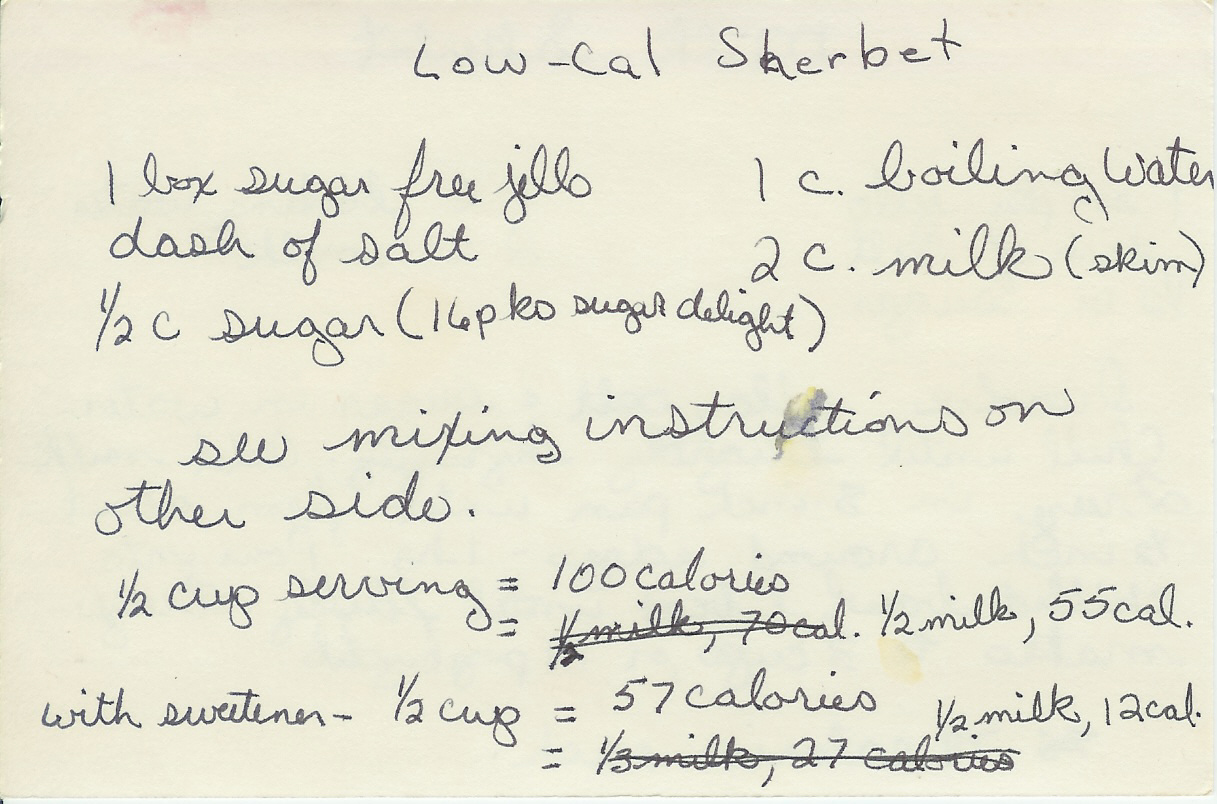 Low-Cal Sherbet
1 box sugar free jello 1 c. boiling water
dash of salt 2 c. milk (skim)
1/2 c sugar (16 pks sugar delight)
see mixing instructions on
other side.
1/2 cup serving = 100 calories
= 1/2 milk, 70 cal. 1/2 milk, 55 cal.
with sweetener - 1/2 cup = 57 calories 1/2 milk, 12 cal.
= 1/3 milk, 27 calories